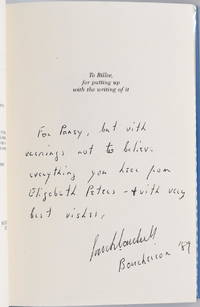 To Billee,
for putting up
with the writing of it
For Pansy, but with
warnings not to believe
everything you hear from
Elizabeth Peters — & with very
best wishes,
Bouchercon '89